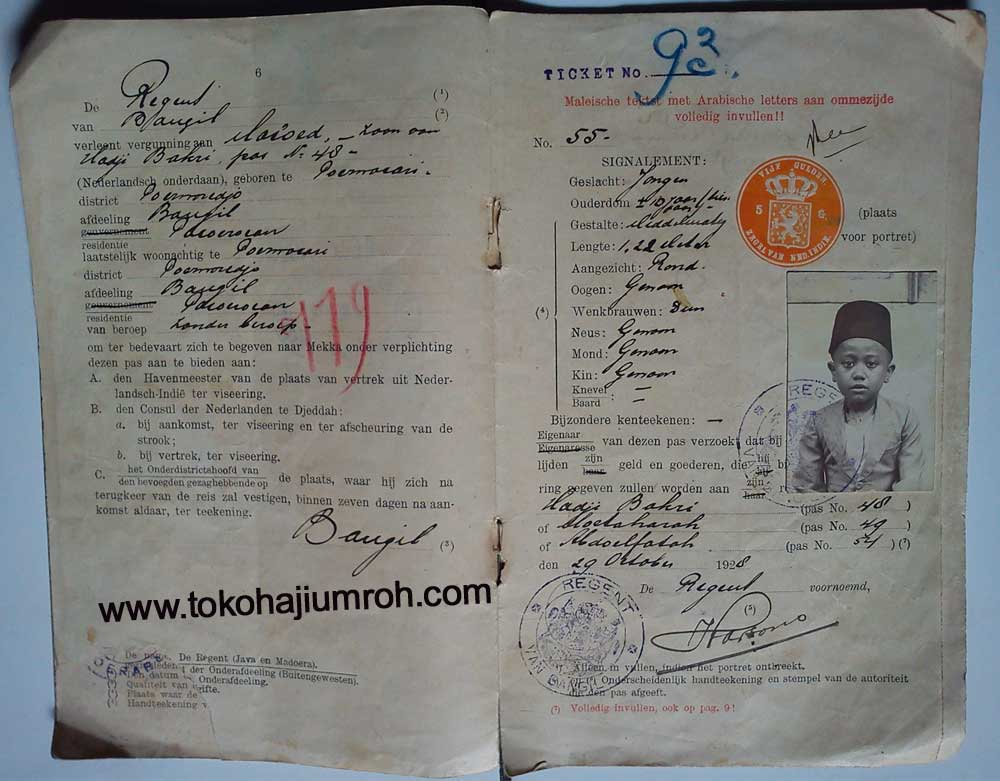 6
De Regent (1)
van Bangil (2)
verleent vergunning aan Maсoed, – zoon van
Hadji Bakri, pas No 48 –
(Nederlandsch onderdaan), geboren te
district
afdeeling Bangil
gouvernement
residentie
laatstelijk woonachtig te
district
afdeeling Bangil
gouvernement
residentie
van beroep zonder beroep –
119
om ter bedevaart zich te begeven naar Mekka onder verplichting
dezen pas aan te bieden aan:
A. den Havenmeester van de plaats van vertrek uit Neder-
landsch-Indië ter viseering.
B. den Consul der Nederlanden te Djeddah:
a. bij aankomst, ter viseering en ter afscheuring van de
strook;
b. bij vertrek, ter viseering.
C. het Onderdistrictshoofd van
den bevoegden gezaghebbende op de plaats, waar hij zich na
terugkeer van de reis zal vestigen, binnen zeven dagen na aan-
komst aldaar, ter teekening.
Bangil (3)
www.tokohajiumroh.com
De Regent (Java en Madoera).
der Onderafdeeling (Buitengewesten).
Onderafdeeling.
Qualiteit van
Plaats waar de
Handteekening v
TICKET No.
Maleische tekst met Arabische letters aan ommezijde
volledig invullen!!
No. 55 –
SIGNALEMENT:
Geslacht: Jongen
Ouderdom ± 10 jaar
Gestalte: Middelmatig
Lengte: 1,22 Meter
Aangezicht: Rond.
Oogen: Gewoon
(4) Wenkbrauwen: Dun
Neus: Gewoon
Mond: Gewoon
Kin: Gewoon
Knevel –
Baard –
VIJF GULDEN
5 G.
ZEGEL VAN NED. INDIE.
(plaats
voor portret)
Bijzondere kenteekenen: –
Eigenaar
Eigenaresse van dezen pas verzoekt dat bij
lijden zijn haar geld en goederen, die hij bi
ring gegeven zullen worden aan zijn haar
Hadji Bakri (pas No. 48)
of Moetaharah (pas No. 49)
of Abdoelfatah (pas No. 54) (7)
den 29 October 1928
De Regent voornoemd,
(5)
REGENT VAN BANGIL
Alleen in vullen, indien het portret ontbreekt.
Onderscheidenlijk handteekening en stempel van de autoriteit
den pas afgeeft.
(7) Volledig invullen, ook op pag. 9!